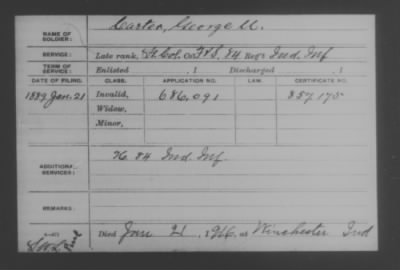 NAME OF SOLDIER: Carter, George M.
SERVICE: Late rank, Lt. Col. Co. F&S, 84 Reg't Ind. Inf.
TERM OF SERVICE: Enlisted , 1 Discharged , 1
DATE OF FILING. CLASS. APPLICATION NO. LAW. CERTIFICATE NO.
1889 Jan. 21 Invalid, 686,091 857,175
Widow,
Minor,
ADDITIONAL SERVICES: K 84 Ind. Inf.
REMARKS:
Died Jan 21, 1916, at Winchester Ind